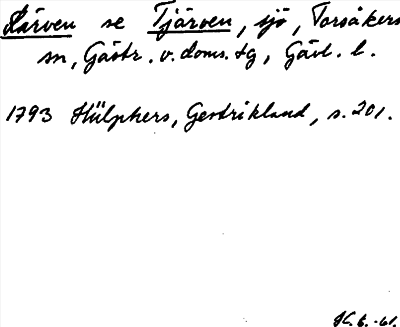 Kärven se Tjärven, sjö, Torsåkers
sn, Gästr. v. doms. tg, Gävl. l.
1793 Hülphers, Gestrikland, s. 201.